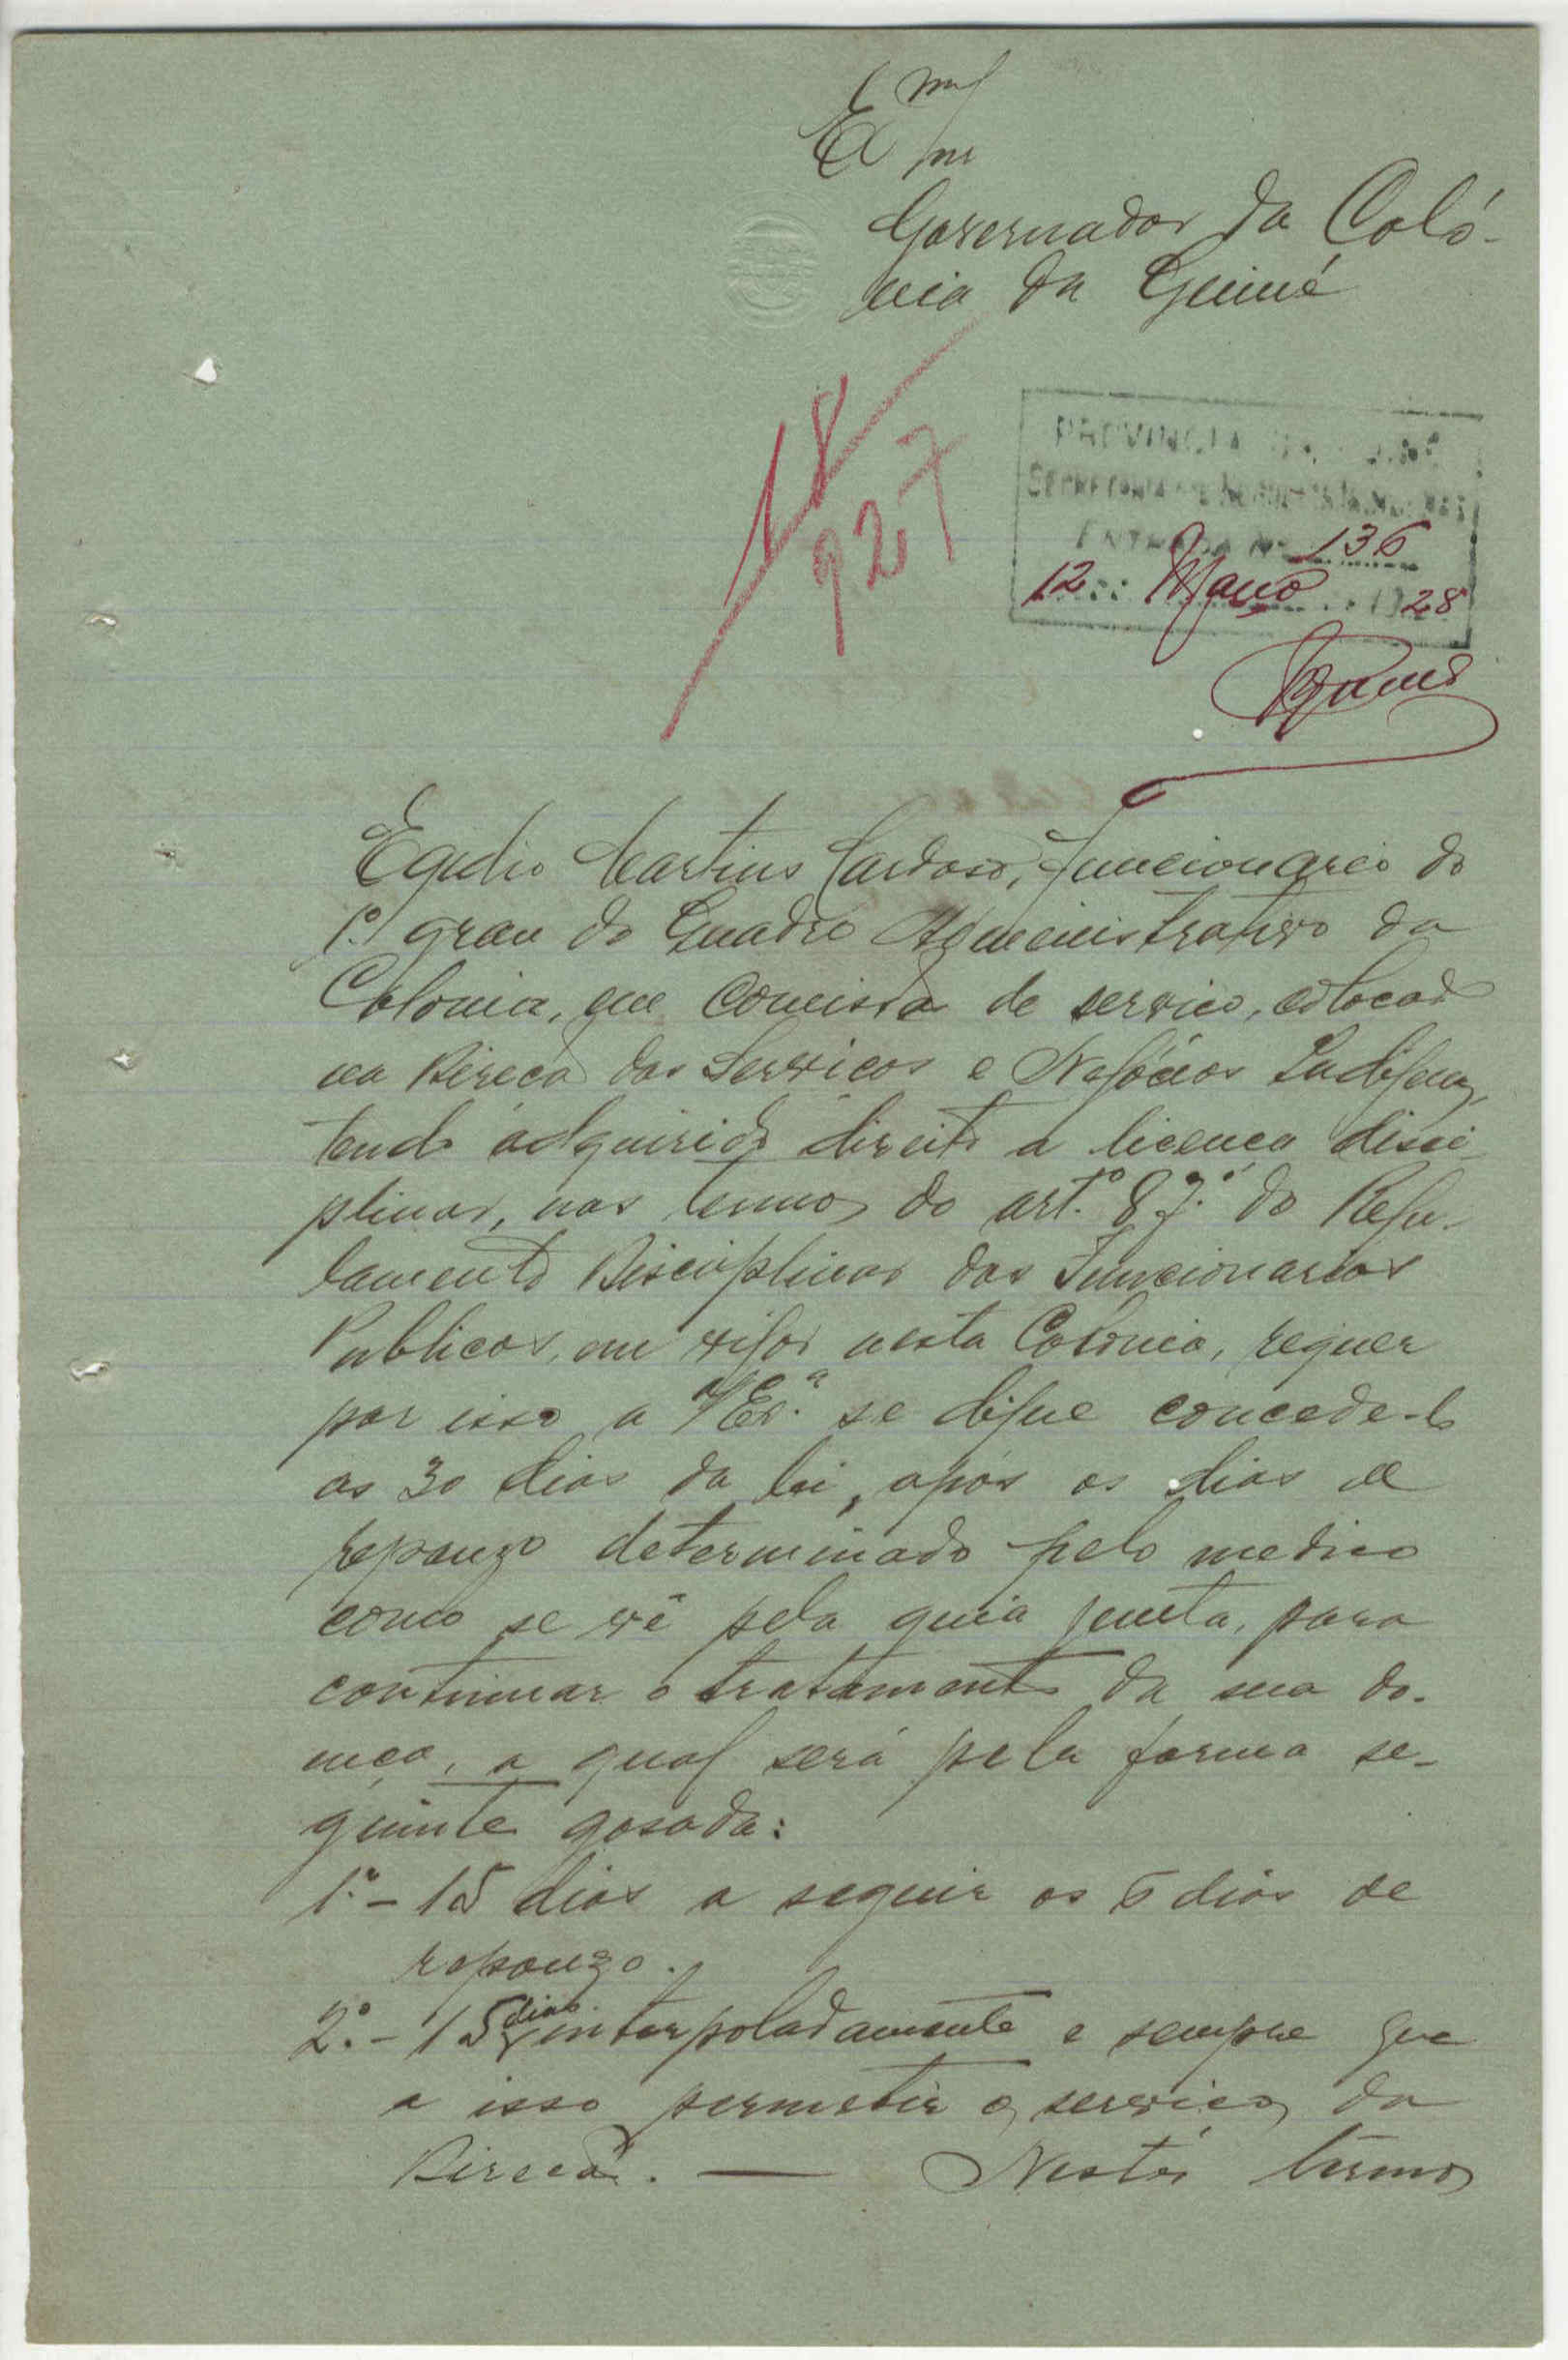 Ex.mo
Governador da Coló-
nia da Guiné
18
927
PROVINCIA
SECRETARIA
ENTRADA Nº 136
12 Março 1928
Egidio Martins Cardoso, funcionario do
1.º grau do Quadro Administrativo da
Colonia, em comissão de serviço, colocado
na Direcão dos Serviços e Negócios Indigenas,
tendo adquirido direito a licença disci-
plinar, nos termos do art.º 87.º do Regu-
lamento Disciplinar dos Funcionarios
Publicos, em vigor nesta Colonia, requer
por isso a V Ex.ª se digne concede-lo
os 30 dias da lei, após os dias de
repouzo determinado pelo medico
como se vê pela guia junta, para
continuar o tratamento da sua do-
ença, a qual será pela forma se-
guinte gosada:
1.º - 15 dias a seguir os 5 dias de
repouzo.
2.º - 15 dias interpoladamente e sempre que
a isso permetir o serviço da
Direcão. — Nestes termos